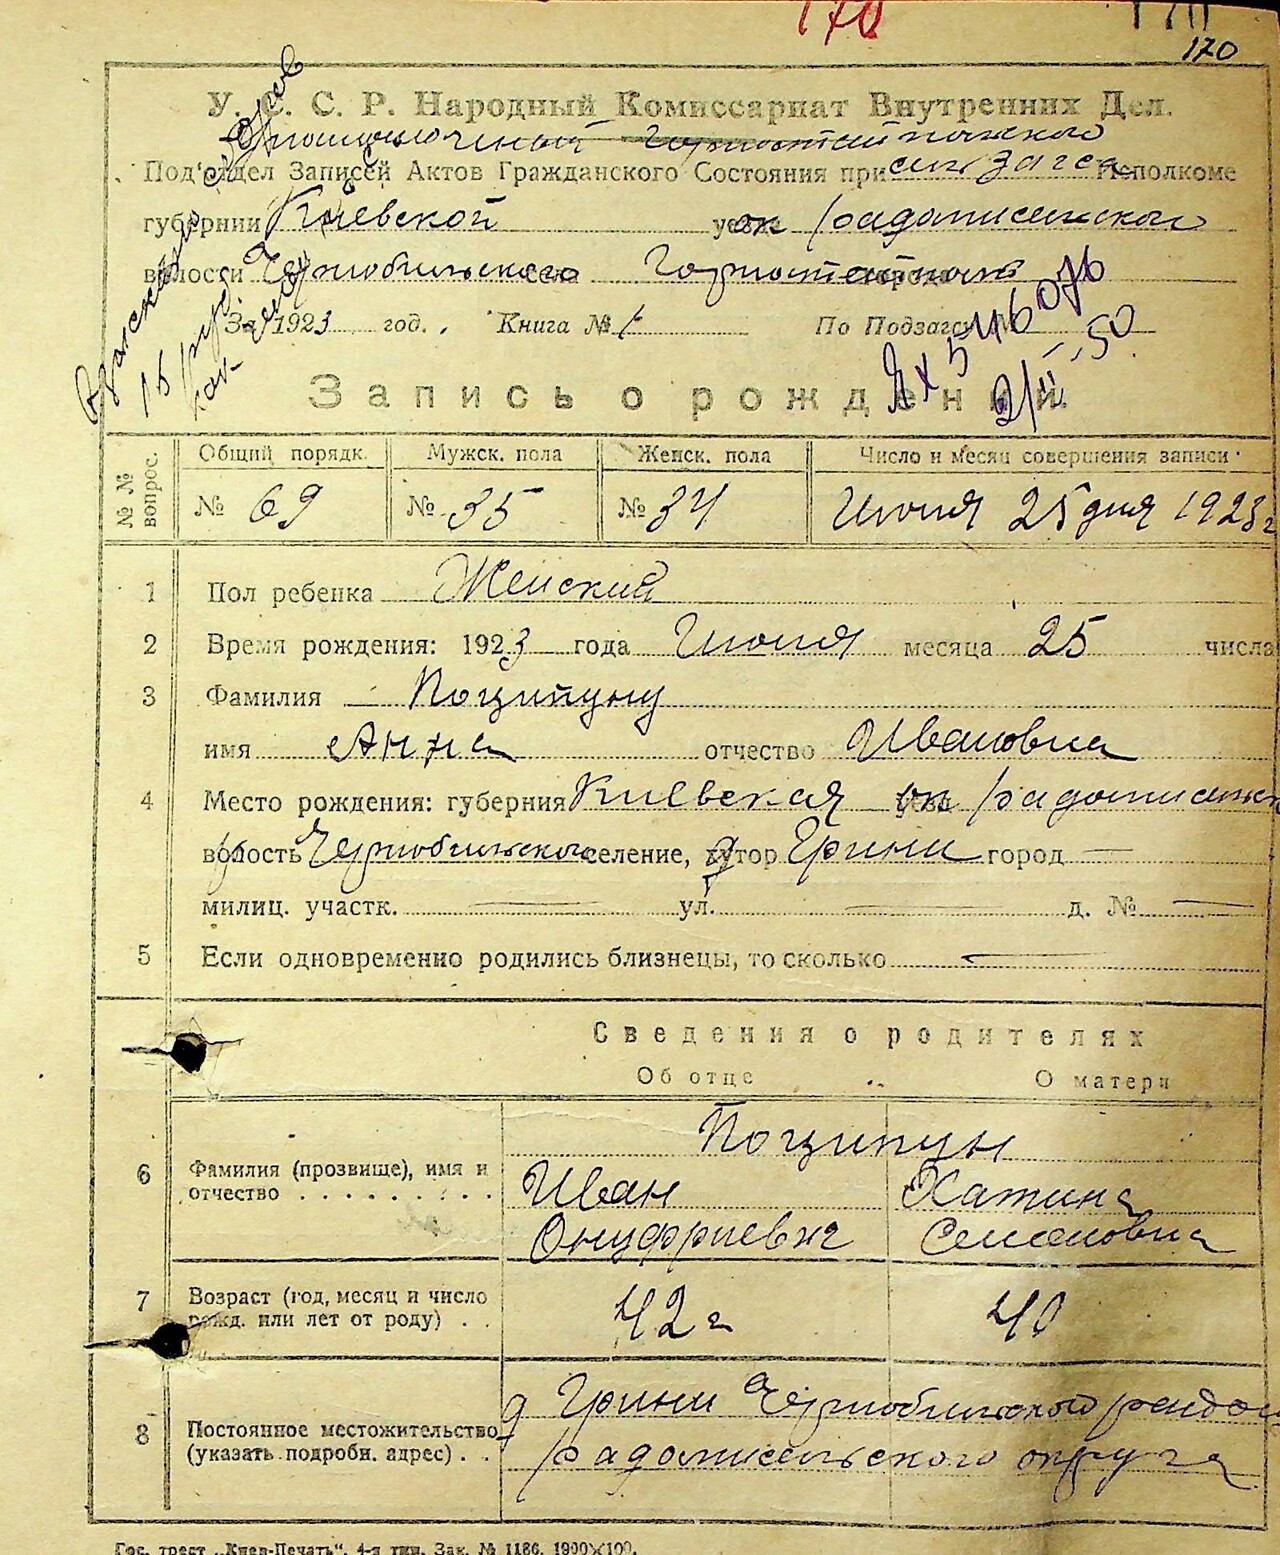 170
170
У. С. С. Р. Народный Комиссариат Внутренних Дел.
Под'отдел Записей Актов Гражданского Состояния при загса Исполкоме
губернии Киевской уезда ок Радомисельской
волости Чернобильского села Горностайполь города
За 1923 год. Книга № 1 По Подзагсу №
ЯХ 546076
2/II-50
Запись о рождении.
№ № вопрос.
Общий порядк. Мужск. пола Женск. пола Число и месяц совершения записи
№ 69 № 35 № 34 Июня 25 дня 1923 г
1 Пол ребенка Женский
2 Время рождения: 1923 года Июня месяца 25 числа
3 Фамилия Поципуну
имя Анна отчество Ивановна
4 Место рождения: губерния Киевская уезд ок Радомисельск
волость Чернобильского селение, хутор д Грини город —
милиц. участк. — ул. — д. № —
5 Если одновременно родились близнецы, то сколько —
Сведения о родителях
Об отце О матери
Поципун
6 Фамилия (прозвище), имя и отчество Иван Хатина
Онуфриевич Семеновна
7 Возраст (год, месяц и число рожд. или лет от роду) 42 г 40
8 Постоянное местожительство (указать подробн. адрес) д Грини Чернобильского район
Радомисельского округа
Гос. трест „Киев-Печать“. 4-я тип. Зак. № 1186. 1900×100.